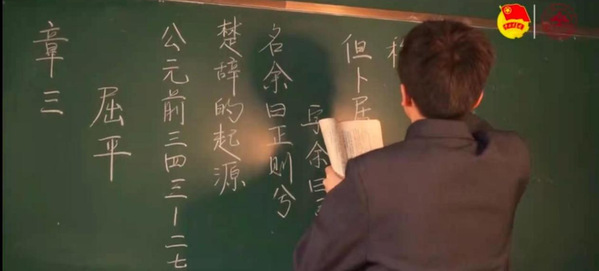 章三
屈平
公元前三四三-二七
楚辞的起源
名余曰正则兮
字余曰
但卜居